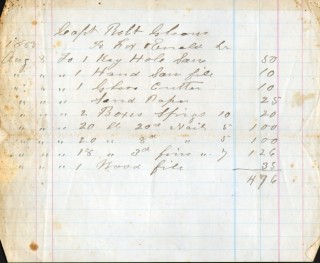 Capt Robt Sloan
To Fox & Dr
1860
Aug 8 To 1 Key Hole Saw 50
" " " 1 Hand Saw file 10
" " " 1 Glass Cutter 10
" " " Sand Paper 25
" " " 2 Boxes Sprigs 10 20
" " " 20 lb 20d Nails 5 100
" " " 20 " 8d " 5 100
" " " 18 " 3d fine " 7 126
" " " 1 Wood file 35
476